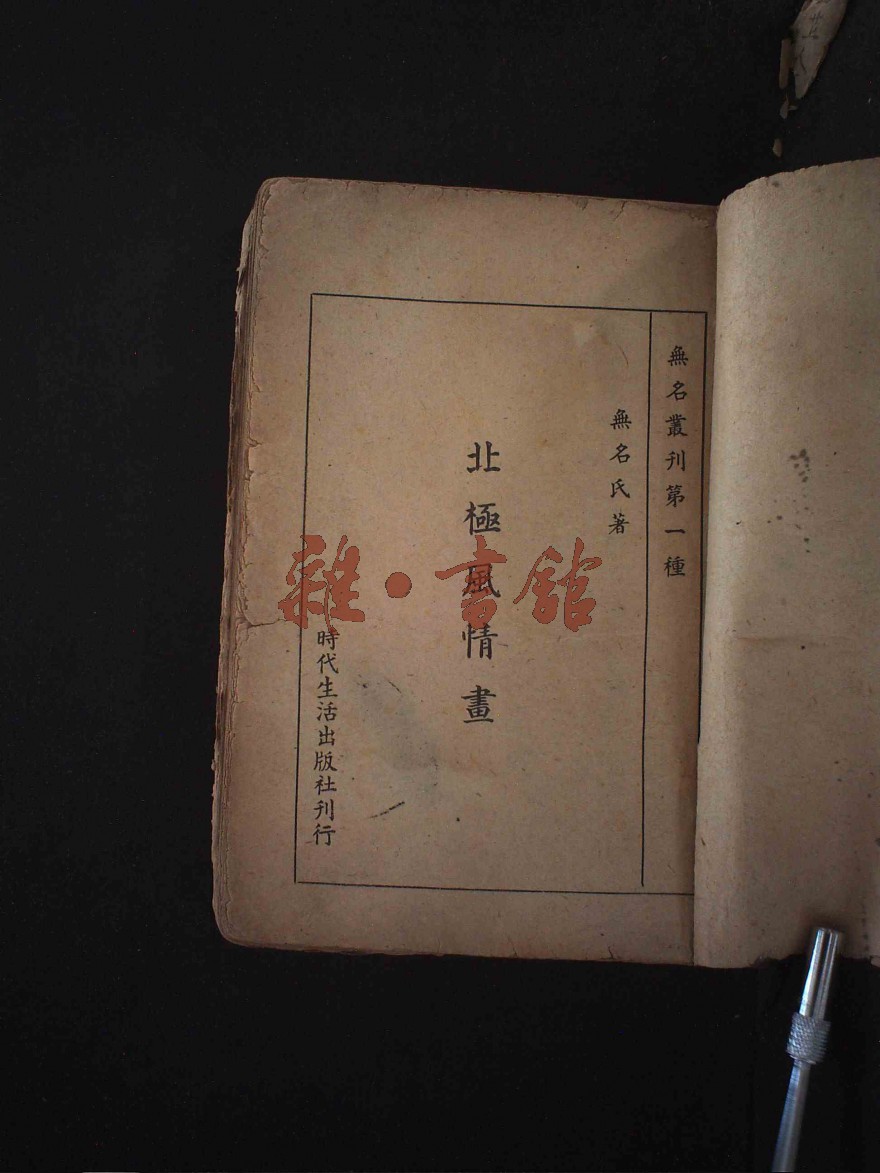 無名叢刊第一種
無名氏著
北極風情畫
時代生活出版社刊行
雜·書館